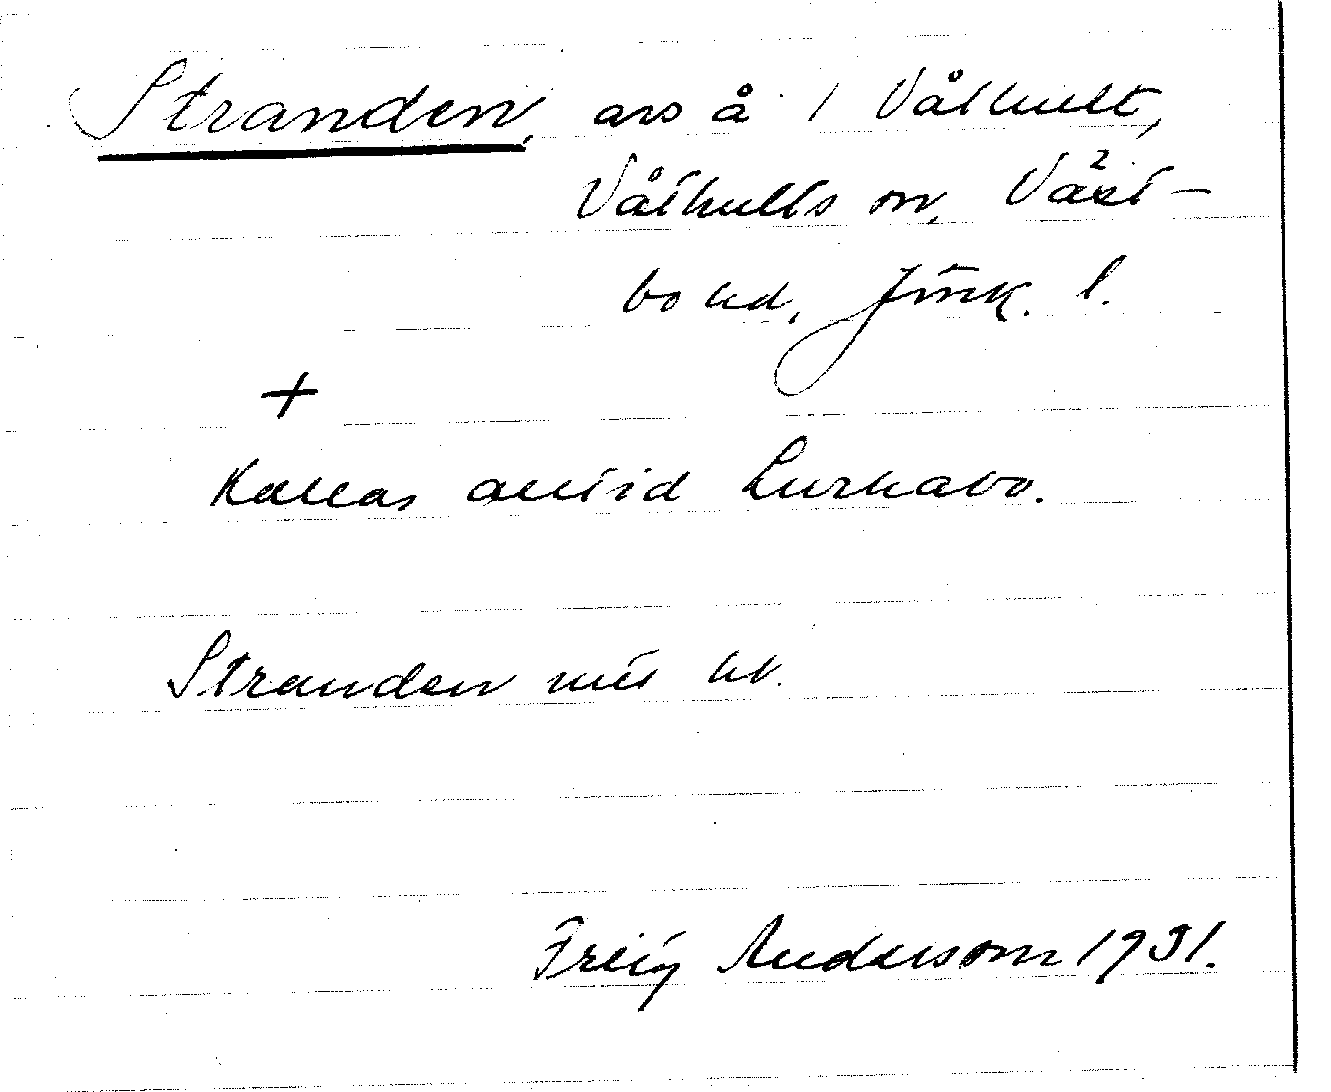 Stranden, avs å 1 Våthult,
Våthults sn, Väst-
bo hd, Jönk. l.
+
Kallas alltid Lurkabo.
Stranden nu
Freij Andersson 1931.